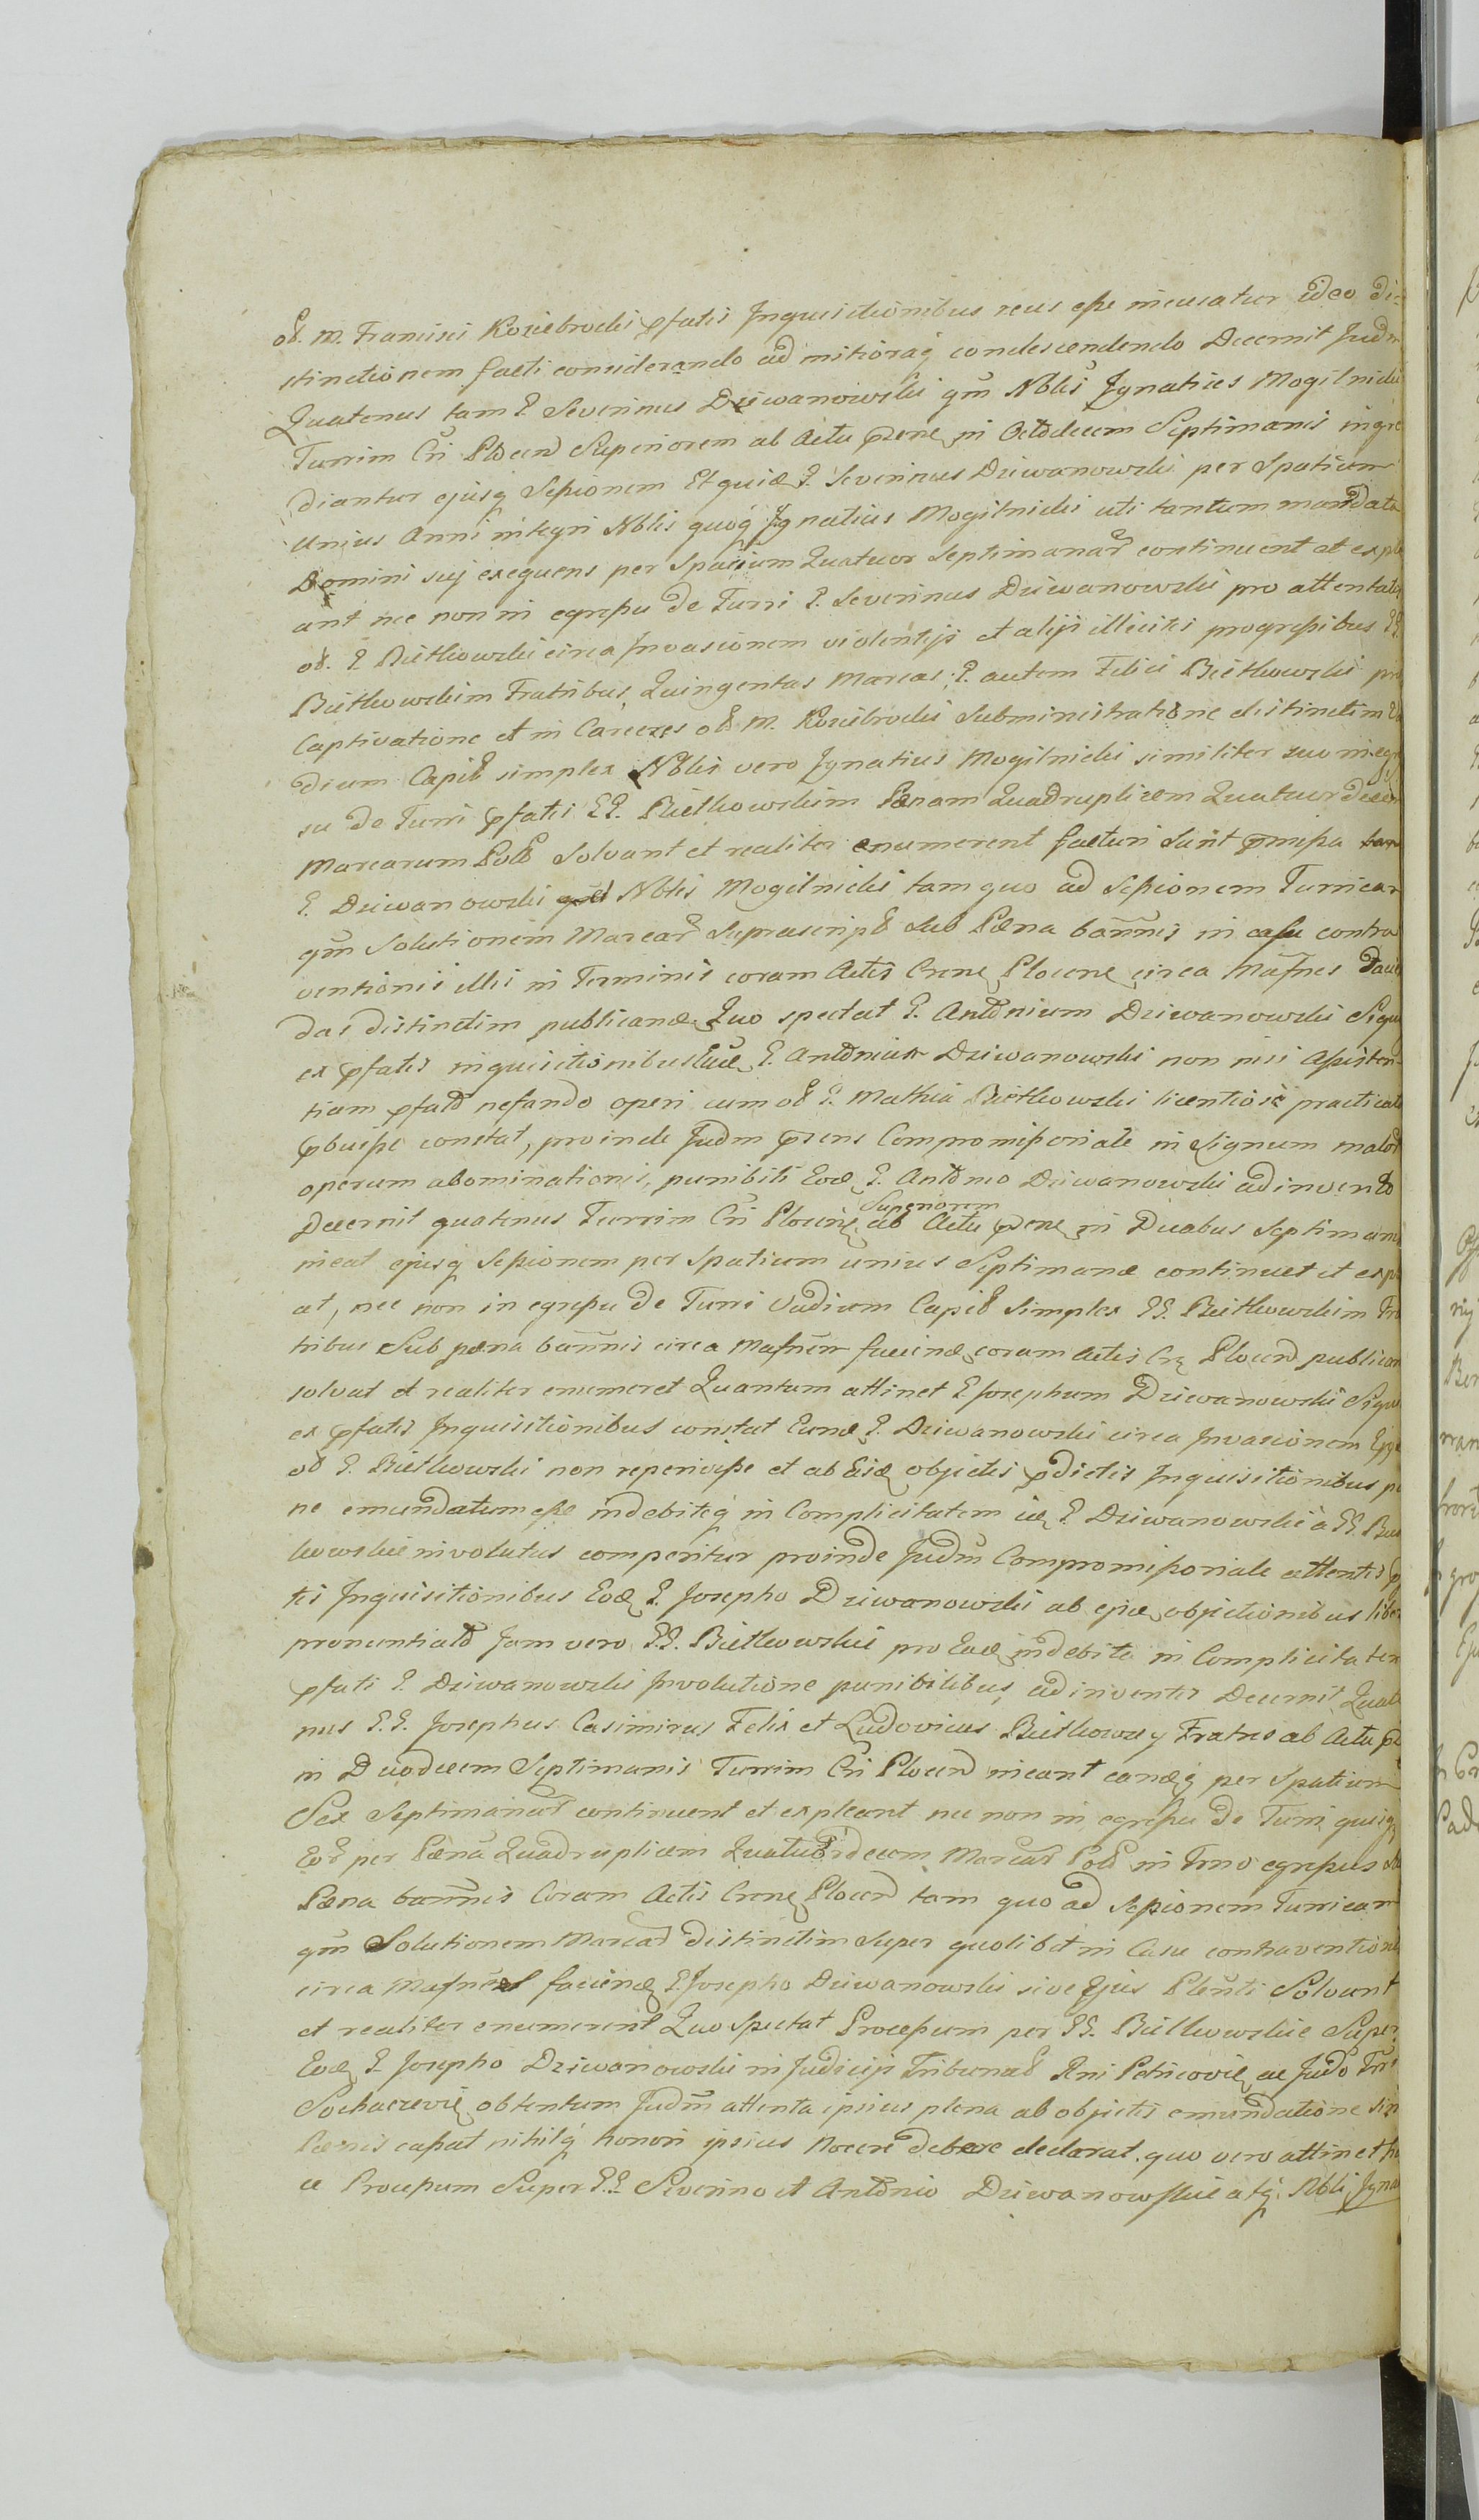 ol. M. Francisci Koziebrodzki pfatis Inquisitionibus reus esse incusatur ideo di-
stinctionem facti considerando ad mitioraq condescendendo Decernit Judm
Quatenus tam G. Severinus Dziwanowski qm Nblis Ignatius Mogilnicki
Turrim Cri Plocen Superiorem ab Actu pnti in Octodecem Septimanis ingre
diantur ejusq Sessionem Et quid G. Severinus Dziwanowski per Spatium
unius Anni integri Nblis quoq Ignatius Mogilnicki uti tantum mandata
Domini sui exequens per Spatium Quatuor Septimanar continuent et exple
ant nec non in egressu de Turri G. Severinus Dziwanowski pro attentata
ol. G Bietkowski circa Invasionem violentijs et alijs illicitis progressibus GG.
Bietkowskim Fratribus Quingentas Marcas; G. autem Felici Bietkowski pro
Captivatione et in Carceres ol M. Koziebrodzki Subministratione distinctim Va
dium Capitl simplex Nblis vero Ignatius Mogilnicki similiter suo in egres
su de Turri pfatis GG. Bietkowskim Pænam Quadruplicem Quatuordecem
Marcarum Poll Solvant et realiter enumerent facturi Sunt pmissa tam
G. Dziwanowski Nblis Mogilnicki tam quo ad Sessionem Turricam
qm Solutionem Marcar Suprascript Sub Pæna bannis in casu contra
ventionis illis in Terminis coram Actis Cren Plocen circa Mafnes Facien
das distinctim publicand. Quo spectat G. Antonium Dziwanowski Siqui
ex pfatis inquisitionibus Eud G. Antonium Dziwanowski non nisi Assisten
tiam pfato nefando operi cum ol G. Mathia Bietkowski licentiosè practicato
pbuisse constat, proinde Judm pns Compromissoriale in Signum malor
operum abominationis, punibili Eod G. Antonio Dziwanowski adinvento
Superiorem
Decernit quatenus Turrim Cri Plocen ab Actu pnti in Duabus Septimanis
ineat ejusq Sessionem per Spatium unius Septimanæ continuet et exple
at, nec non in egressu de Turri Vadium Capitl Simplex GG. Bietkowskim Fra
tribus Sub pæna bannis circa Mafnem faciend coram Actis Cri Plocen publican
solvat et realiter enumeret Quantum attinet G Josephum Dziwanowski Siqui
ex pfatis Inquisitionibus constat Eund G. Dziwanowski circa Invasionem
ol G. Bietkowski non reperiisse et ab Eisd objectis pdictis Inquisitionibus ple
ne emundatum esse indebiteq in Complicitatem id G. Dziwanowski à GG. Biet
kowskie involutus comperitur proinde Judm Compromissoriale attentis pfa
tis Inquisitionibus Eod G. Josepho Dziwanowski ab ejusd objectionibus libero
pronuntiato Jam vero GG. Bietkowskie pro Ead indebita in Complicitatem
pfati G. Dziwanowski Involutione punibilibus, adinventis Decernit Quate
nus GG. Josephus Casimirus Felix et Ludovicus Bietkowscy Fratres ab Actu pnti
in Duodecem Septimanis Turrim Cri Plocen ineant eandq per Spatium
Sex Septimanar continuent et expleant nec non in egressu de Turri quisq
Eor per Pænã Quadruplicem Quatuordecem Marcar Poll in Trno egressus sub
Pæna bannis Coram Actis Cren Plocen tam quo ad Sessionem Turricam
qm Solutionem Marcar distinctim Super quolibet in Casu contraventionis
circa Mafnes faciend G. Josepho Dziwanowski sive Ejus Plenti Solvant
et realiter enumerent Quo Spectat Processum per GG. Bietkowskie Super
Eod G. Josepho Dziwanowski in Judicijs Tribunal Rni Petricovie ac Judo Trri
Sochaczevie obtentum Judm attenta ipsius plena ab objectis emundatione sine
Pænis caput nihilq honori ipsius Nocere debere declarat. quo vero attinet
Processum Super GG Severino et Antonio Dziwanowskie atq: Nbli Igna